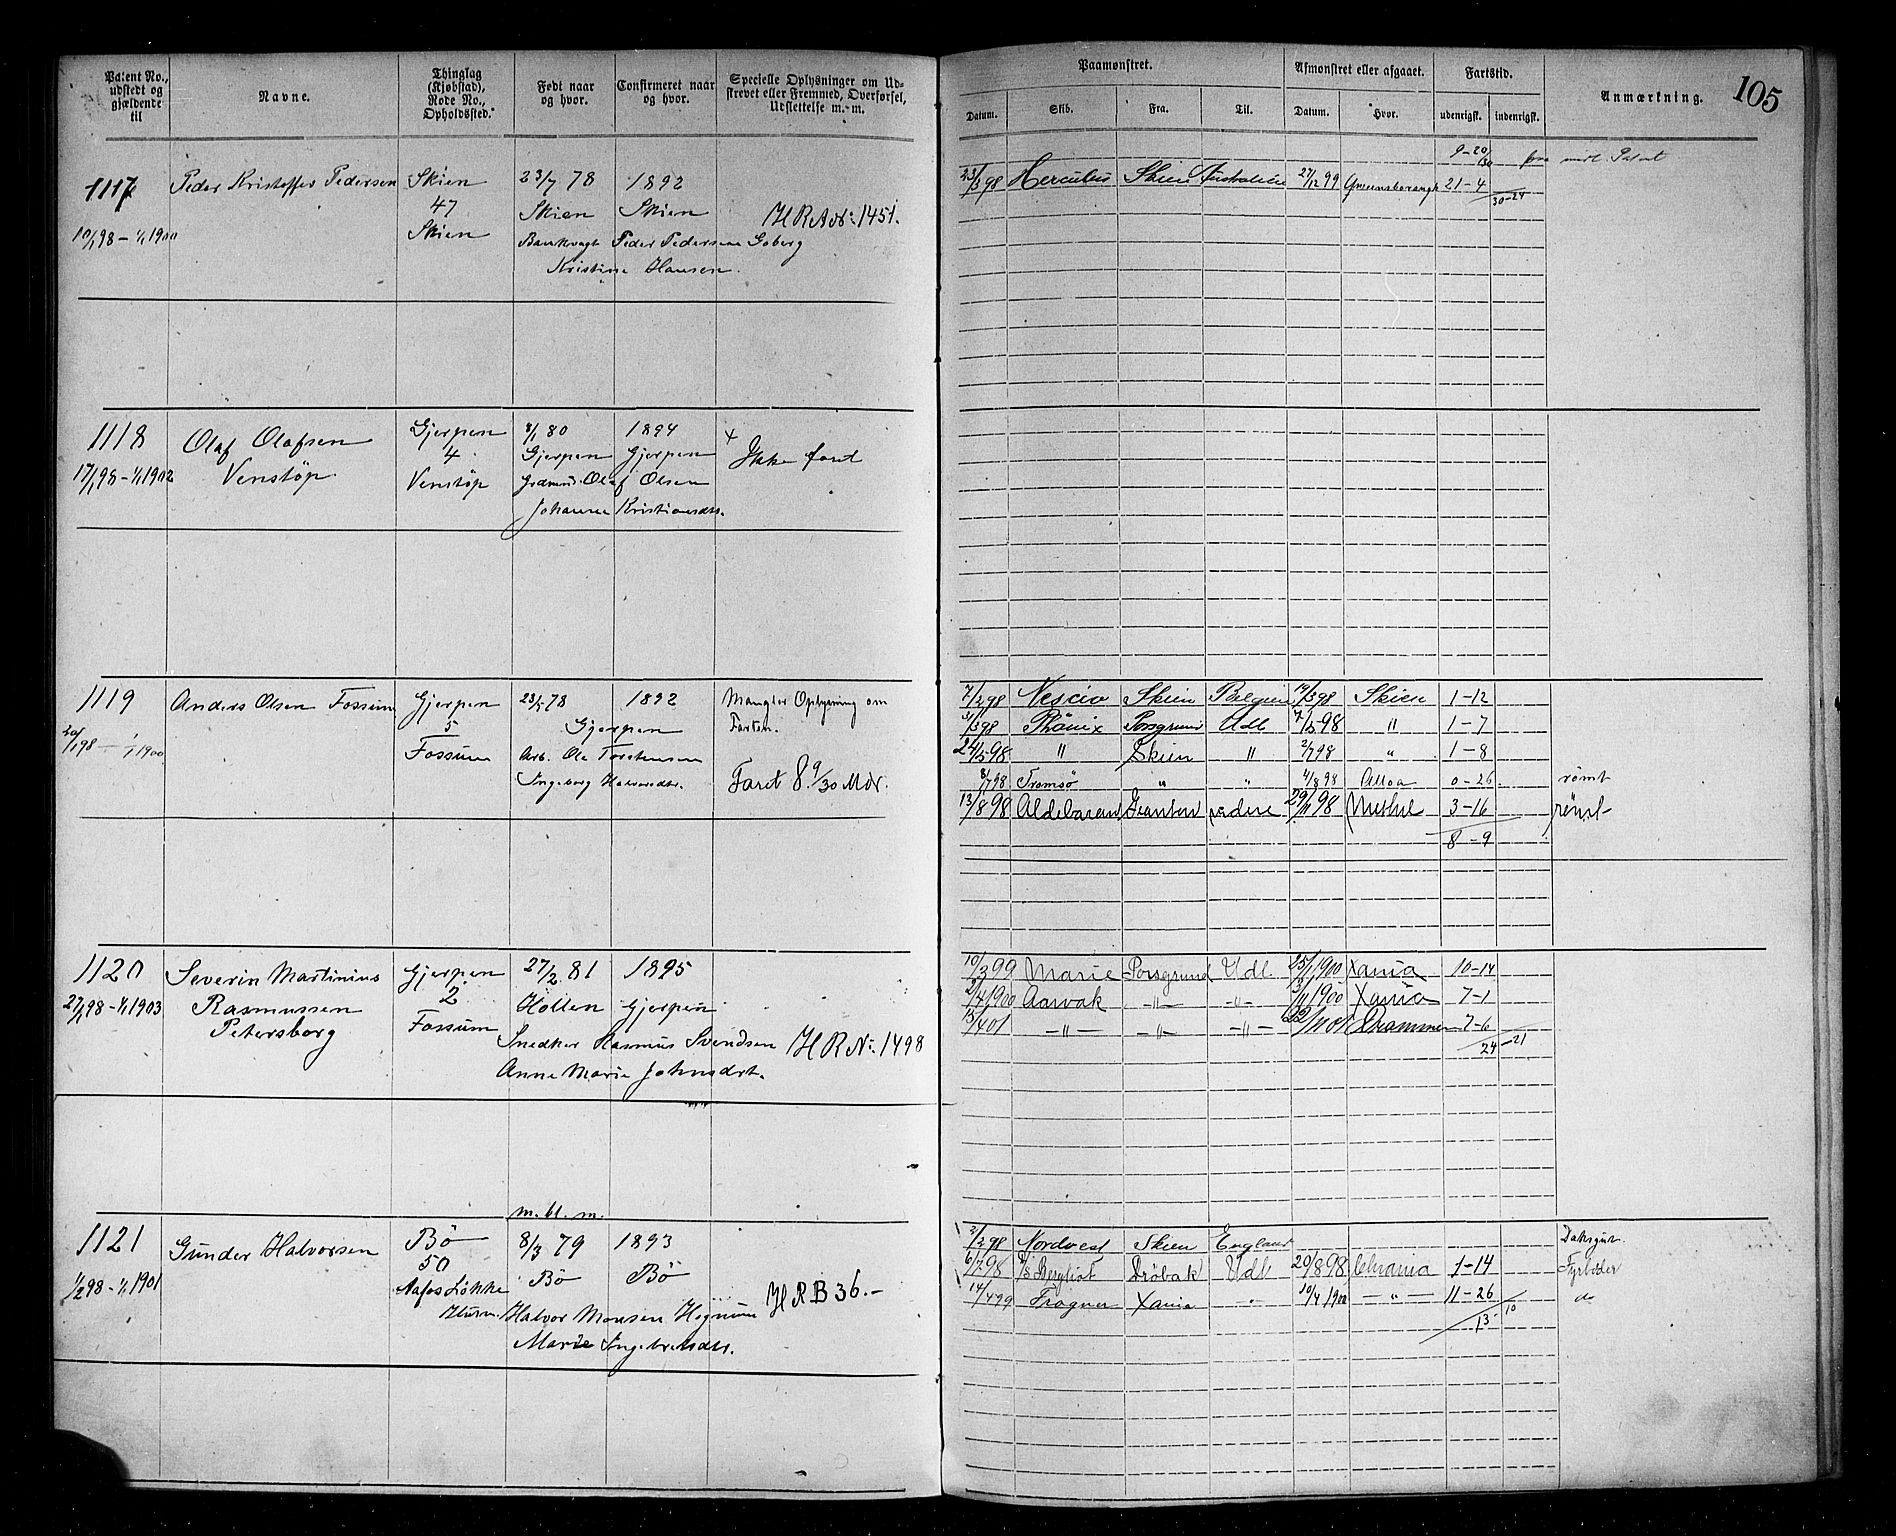 Patent No., udstedt og gjældende til
Navne.
Thinglag (Kjøbstad), Rode No., Opholdssted.
Født naar og hvor.
Confirmeret naar og hvor.
Specielle Oplysninger om Udskrevet eller Fremmed, Overførsel, Udslettelse m. m.
Paamønstret.
Afmønstret eller afgaaet.
Fartstid.
Anmærkning.
105
Datum. Skib. Fra. Til. Datum. Hvor. udenrigsk. indenrigsk.
1117 Peder Kristoffer Pedersen Skien 23/7 78 1892
47 Skien Skien H R A N: 1451.
10/1 98 - 1/1 1900 Skien
Peder Pedersen Goberg
Kristine Hansen.
9-20/30
23/3 98 Hercules Skien Australien 27/12 99 Greensborough 21-4
30-24
1118 Olaf Olafsen Gjerpen 8/1 80 1894 x
17/1 98 - 1/1 1902 Venstøp 4 Gjerpen Gjerpen Ikke faret
Venstøp Grdmd. Olaf Olsen
Johanne Kristiansdtr.
1119 Anders Olsen Fossum Gjerpen 23/5 78 1892 Mangler Oplysning om Farten.
5 Gjerpen
20/1 98 - 1/1 1900 Fossum Arb. Ole Torstensen
Ingeborg Halvorsdtr. Faret 8 9/30 Mdr.
7/2 98 Nescio Skien Belgien 19/3 98 Skien 1-12
31/3 98 Phönix Porsgrund Udl 7/5 98 " 1-7
24/5 98 " Skien " 2/7 98 " 1-8
8/7 98 Tromsø " " 4/8 98 Alloa 0-26 rømt
13/8 98 Aldebaran Granton videre 29/11 98 3-16 rømt
8-9
1120 Severin Martinius Gjerpen 27/2 81 1895
27/1 98 - 1/1 1903 Rasmussen 2 Holden Gjerpen
Petersborg Fossum Snedker Rasmus Svendsen H R N: 1498
Anne Marie Johnsdrt.
10/3 99 Marie Porsgrund Udl. 25/1 1900 Xania 10-14
2/4 1900 Aarvak -"- -"- 3/11 1900 Xania 7-1
15/4 01 -"- -"- -"- 22/11 01 Drammen 7-6
24-21
m. bl. m.
1121 Gunder Halvorsen Bö 8/3 79 1893
1/2 98 - 1/1 1901 50 Bö Bö H R B 36.-
Nafos Løkke
Halvor Monsen Hognum
Marie Ingebretsdtr.
2/2 98 Nordvest Skien England Daksgut.
6/3 98 D/S Bergliot Dröbak Udl 20/8 98 Chrania 1-14 Fyrböder
14/4 99 Frogner Xania " 10/4 1900 -"- 11-26 do
13 10